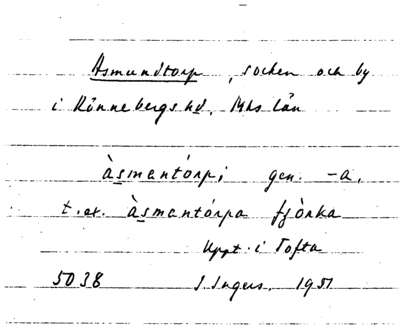 Asmundtorp, socken och by
i Rönnebergs hd, Mhs län
àsmantórp; gen. -a,
t.ex. àsmantórpa fjòrka
Uppt. i Tofta
5038 I. Ingers. 1951